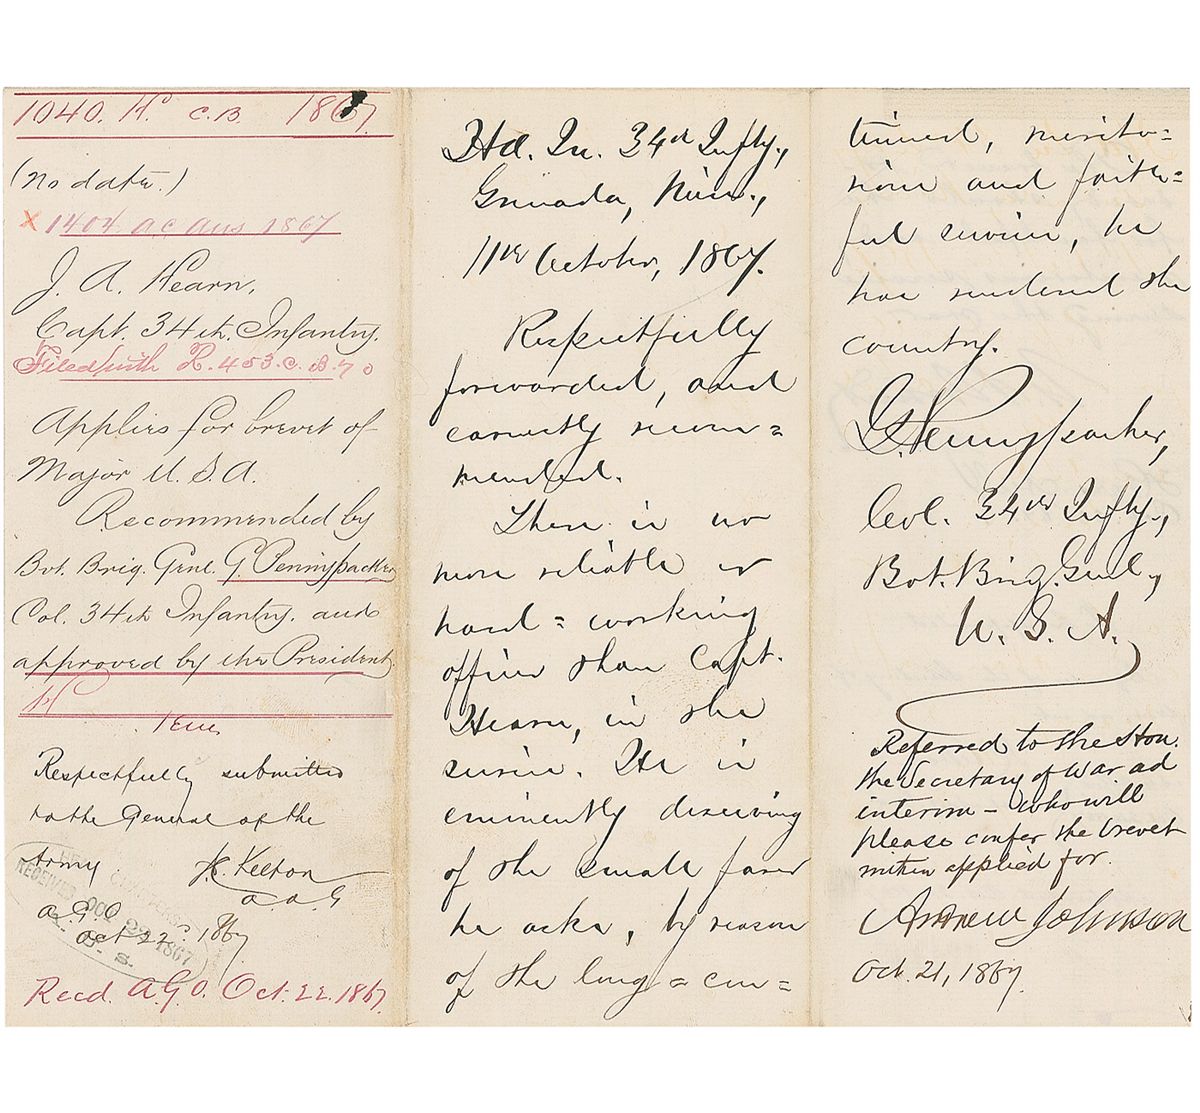 1040. H. C.B. 1867.
(No date.)
x 1404 AC Aus 1867
J. A. Hearn,
Capt. 34th. Infantry.
Filed with R. 453. C. B. 70
Applies for brevet of
Major U. S. A.
Recommended by
Bvt. Brig. Genl. G. Pennypacker
Col. 34th Infantry. and
approved by the President.
H
1 Enc
Respectfully submitted
to the General of the
Army J.C. Kelton
A.A.G
A.G.O
Oct 22. 1867
RECEIVED OCT 22 1867
Recd. A.G.O. Oct. 22. 1867
Hd. Qu. 34th Infty.,
Grenada, Miss.,
11th October, 1867.
Respectfully
forwarded, and
earnestly recom=
mended.
There is no
more reliable or
hard=working
officer than Capt.
Hearn, in the
service. He is
eminently deserving
of the small favor
he asks, by reason
of the long=con=
tinued, merito=
rious and faith=
ful service, he
has rendered the
country.
G. Pennypacker,
Col. 34th Infty.,
Bvt. Brig. Genl.,
U. S. A.
Referred to the Hon.
the Secretary of War ad
interim – who will
please confer the brevet
within applied for.
Andrew Johnson
Oct. 21, 1867.